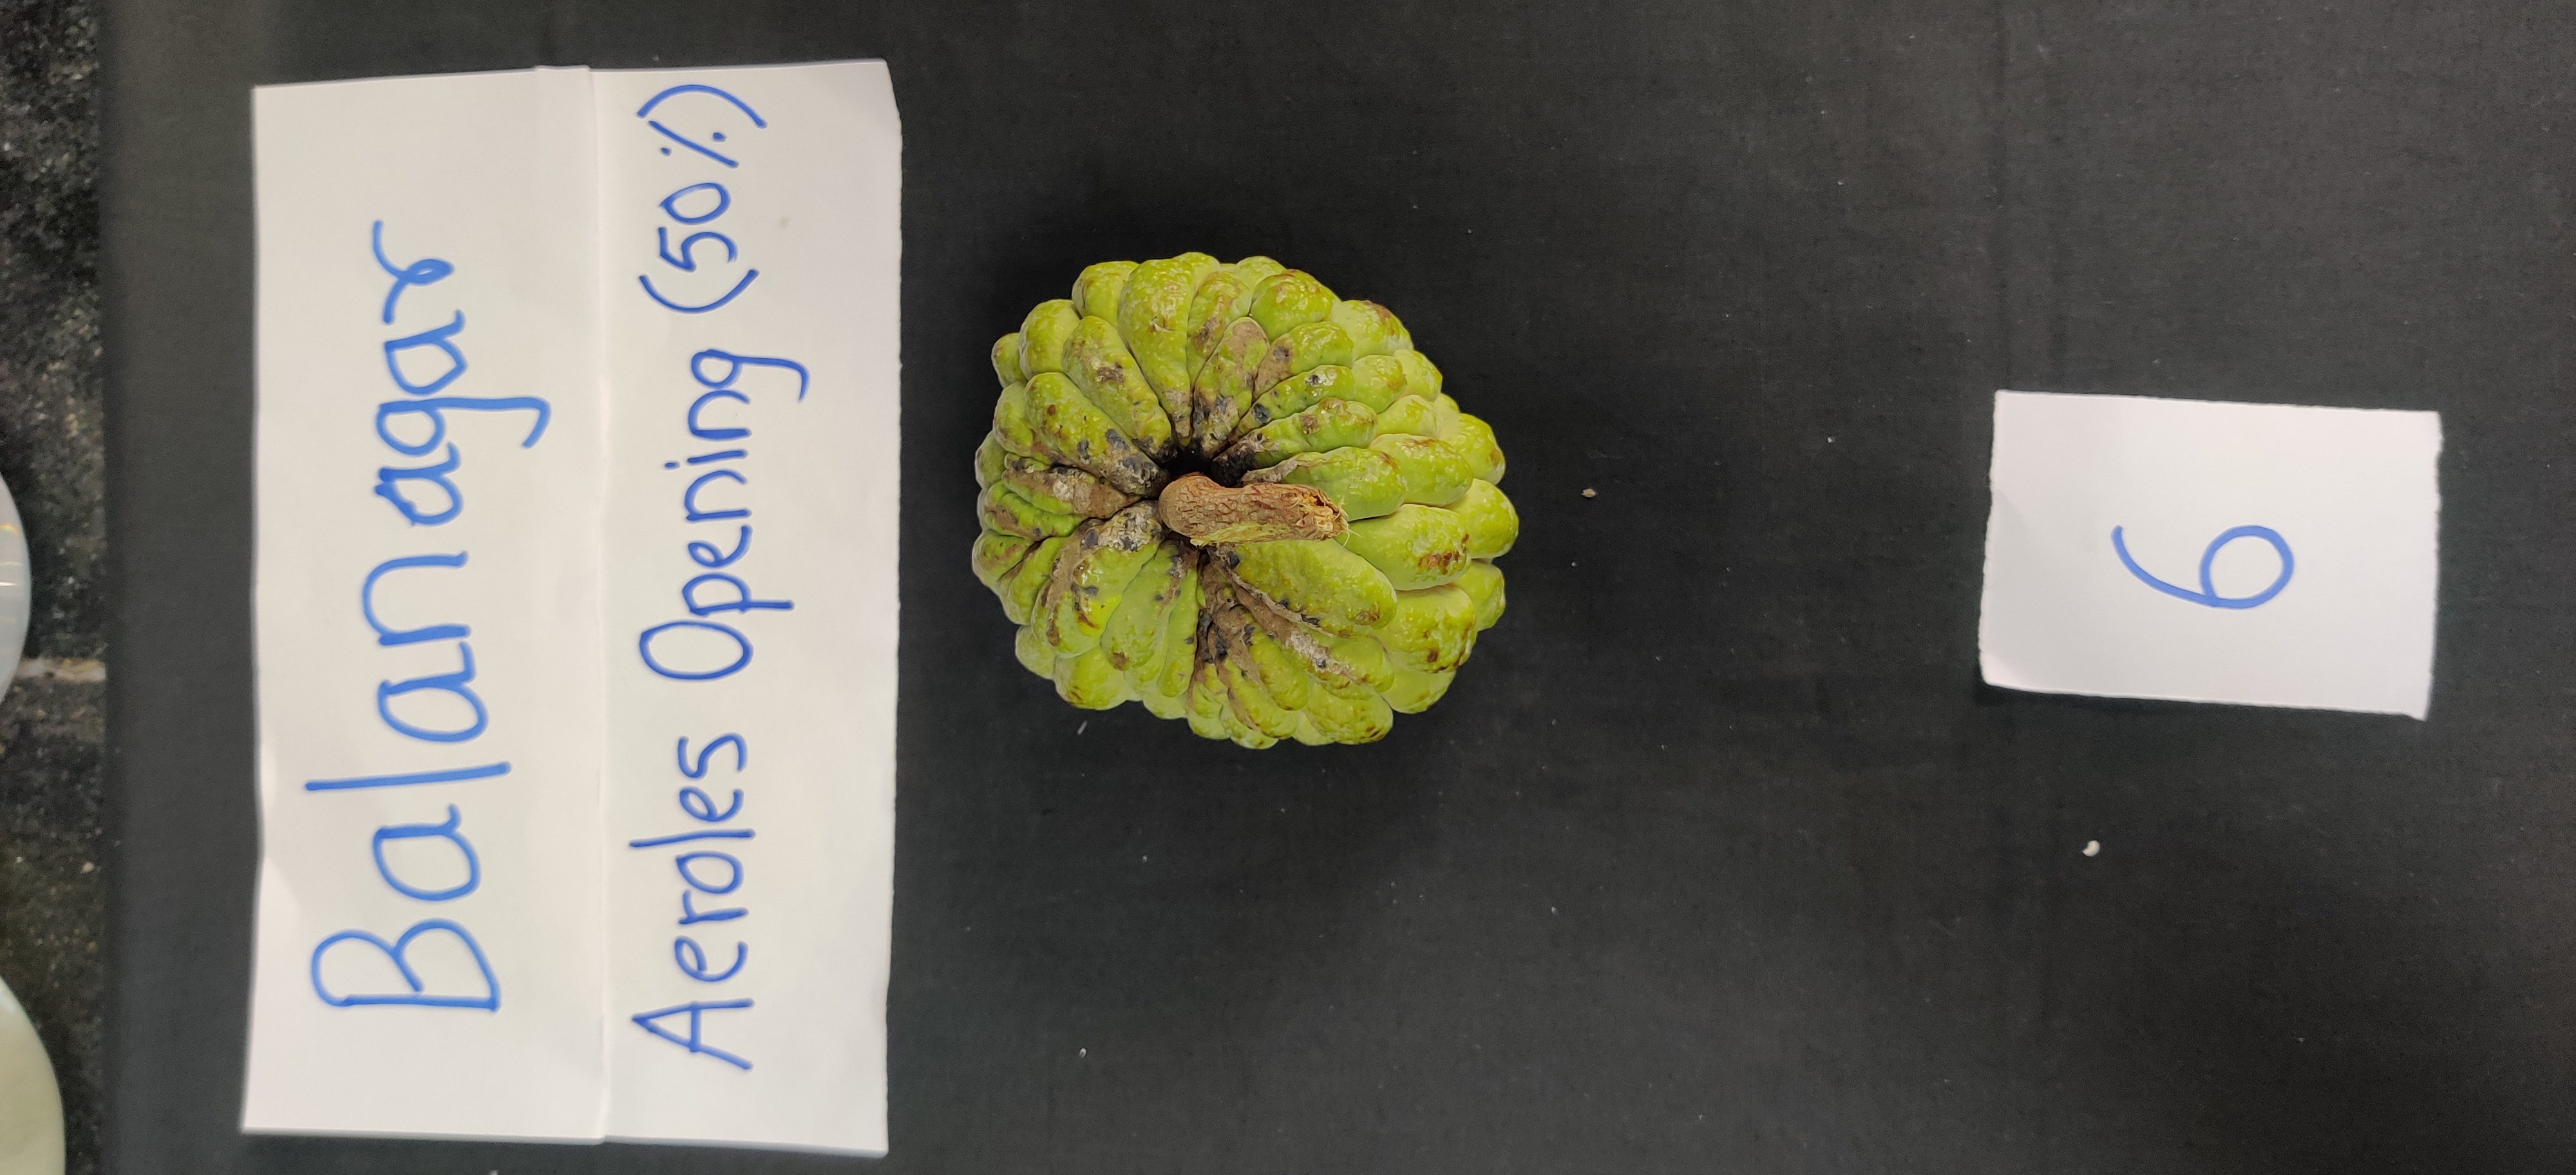 Balanagar
Aeroles Opening (50%)
6